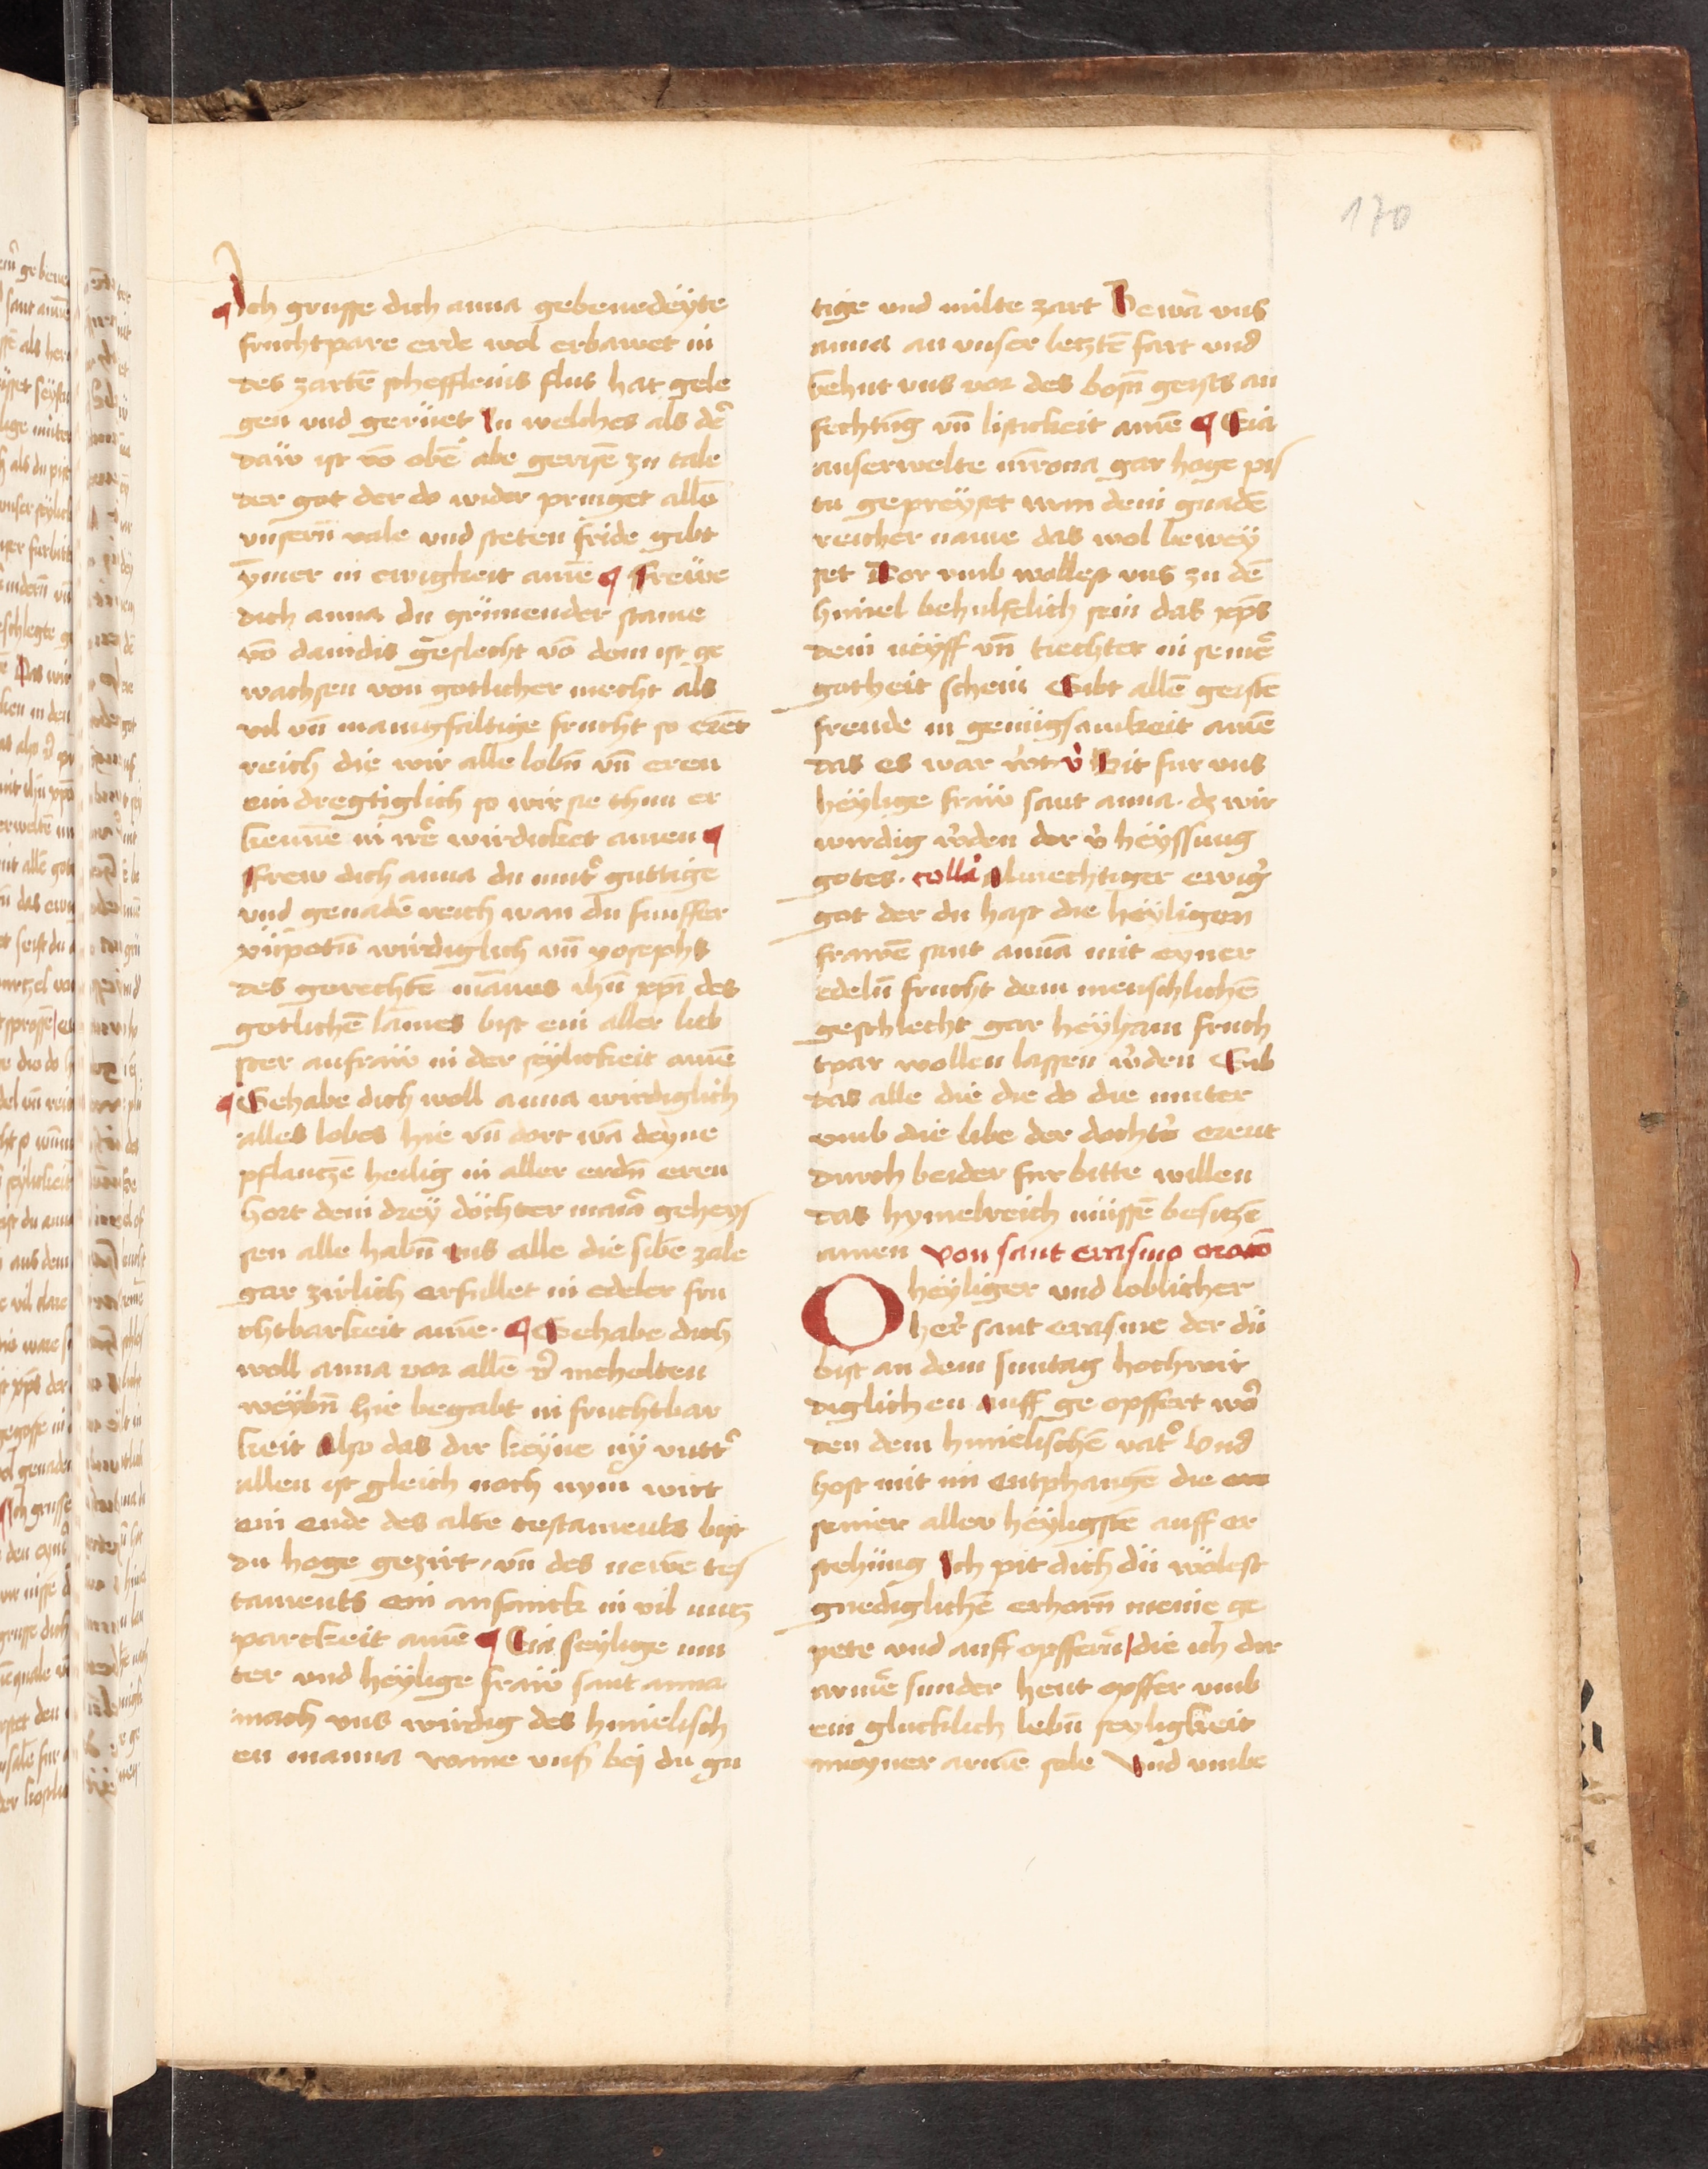 170
¶ Ich grusse dich anna gebenedeÿte
fruchtpare erde wol erbawet in
des zartē scheffleins flus hat gele
gen und gerüet In welches als der̄
daw ist vō obē abe gerisē zu tale
der got der do wider pringet allē
unsern̄ vale und steten fride gibt
ÿmer in ewigkeit amē ¶ Freüe
dich anna du grünender stame
vō dauidis geslecht vō dem ist ge
wachsen von gotlicher mecht als
vil vn̄ manigfaltige frucht so
reich die wir alle lobn̄ vn̄ eren
ein dregtiglich so wir sie thun er
kennē in wirdicket amen ¶
Frew dich anna du mut' guttige
und genadē reich wan du
wirdiglich vn̄ yosephs
des gerechtē mānes ihū xpī des
gotlichē lāmes bist ein aller lieb
ster anfraw in der seylickeit amē
¶ Gehabe dich woll anna wirdiglich
alles lobes hie vn̄ dort wā deyne
pflanczē heilig in aller erdn̄ eren
hort dein dreÿ döchter maīa geheys
sen alle habn̄ uns alle die sibē zale
gar zirlich erfullet in edeler fru
chtbarkeit amē · ¶ Gehabe dich
woll anna vor allē v' mehelten
weÿbn̄ hie begabt in fruchtbar
keit Also das dir keyne nÿ vntt'
allen ist gleich noch nym̄ wirt
ein ende des alte testaments bist
du hoge gezirt / vn̄ des newē tes
taments ein anfanck in vil nutz
parckeit amē ¶ Eia seylige mu
ter und heÿlige fraw sant anna
mach uns wirdig des himelisch
en manna wane uns bei du gu
tige und milte zart Bewar uns
anna an unser letztē fart und
behut uns vor des bosn̄ geysts an
fechtūg vn̄ listickeit amē ¶ Eia
auserwelte mr̄rona gar hoge pis
tu gepreÿset wan dein gnadē
reicher name das wol bewey
set Dor umb wollest uns zu dē
himel behulfelich sein das xp̄s
dein neÿff vn̄ trechter in seinē
gotheit schein Gibt allē geistē
freude in genügsamkeit amē
das es war v̄ Bit fur uns
heÿlige fraw sant anna · dz wir
wirdig w'den der v' heÿssung
gotes · coll'a Almechtiger ewig'
got der du hast die heÿligen
frawē sant annā mit eyner
edeln̄ frucht dem menschlichē
geschlecht gar heÿlsam fruch
tpar wollen lassen w'den Gib
das alle die die do die muter
umb die libe der docht'r erent
durch beider furbitte willen
das hymelreich müssē besitzē
amen Von sant erasmo oracō
O heÿliger und loblicher
her' sant erasme der dü
bist an dem suntag hochwir
diglichen auff ge opffert wor
den dem himelischē vat' Und
host mit im entphangē die ere
seiner aller heÿligstē auff er
stehüng Ich pit dich dü wölest
gnediglichē erhorn̄ meine ge
pete und auff opffern̄ / die ich dir
armē sunder heut opffer umb
ein glucklich lebn̄ seyligkeit
meyner armē sele Und umbe